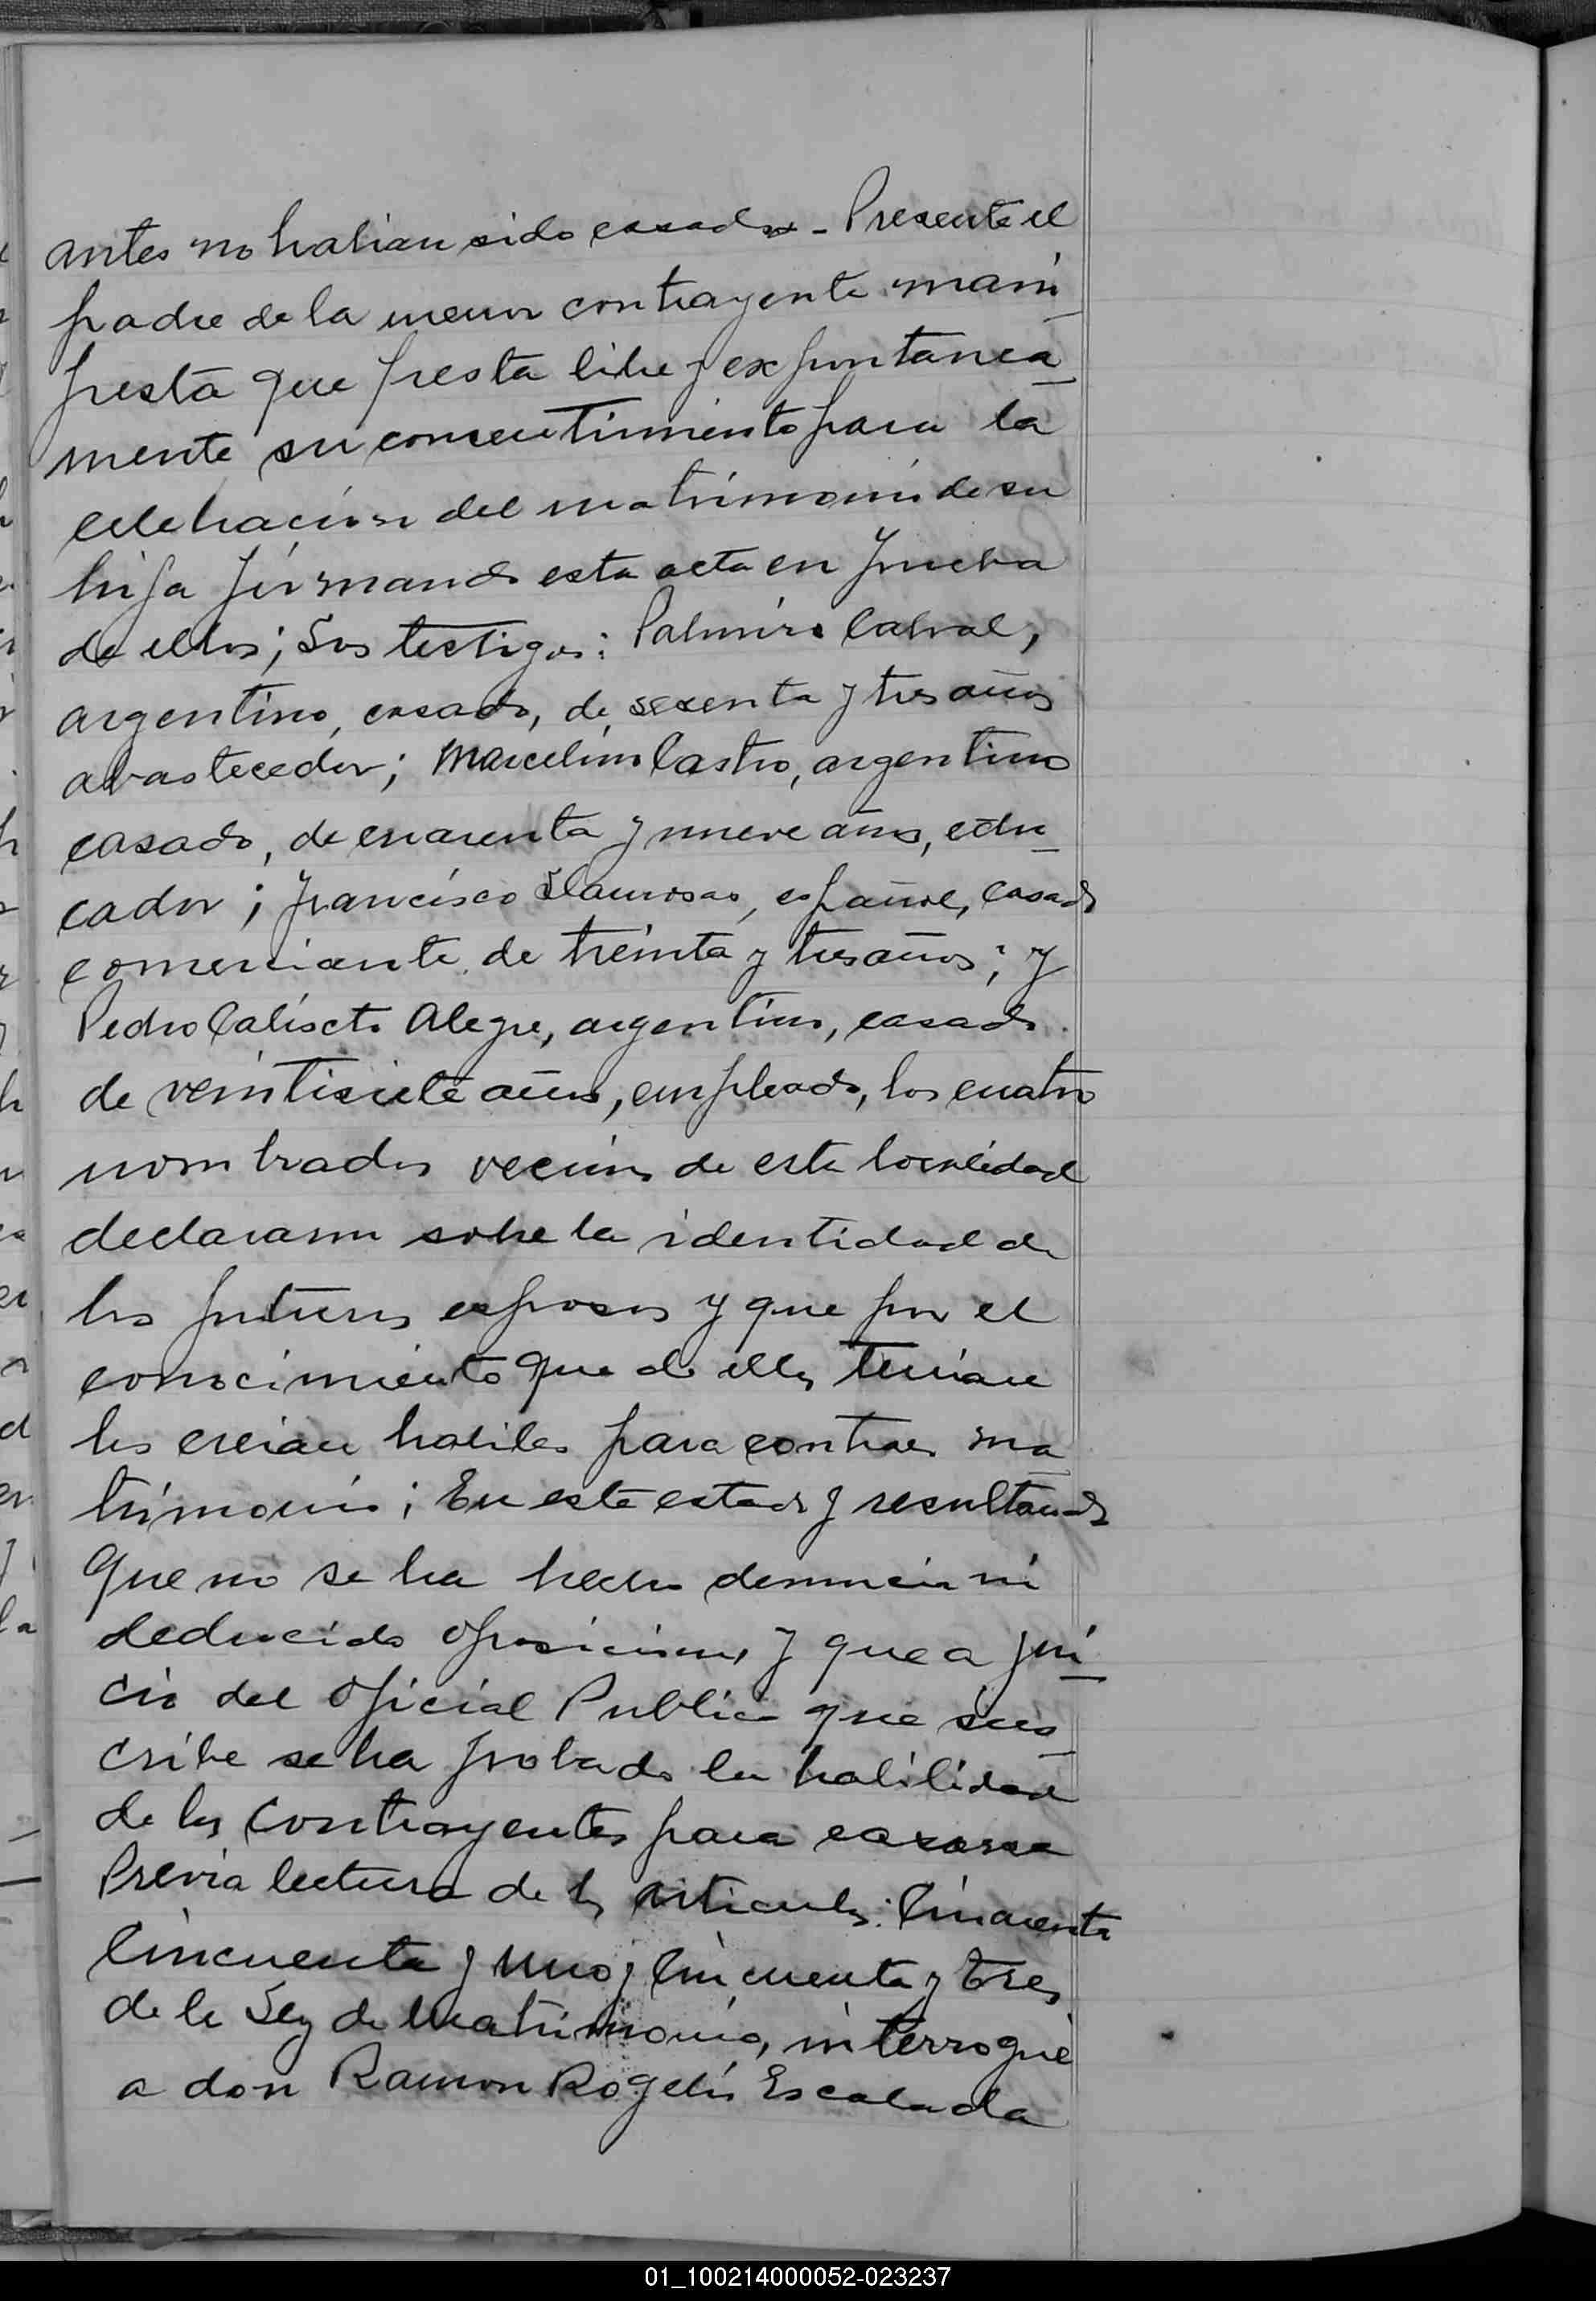 antes no habian sido casados - Presente el
padre de la menor contrayente mani
fiesta que presta libre y expontanea
mente su consentimiento para la
celebración del matrimonio de su
hija firmando esta acta en prueba
de ellos; Los testigos: Palmiro Cabral,
argentino, casado, de sesenta y tres años
abastecedor; Marcelino Castro, argentino
casado, de cuarenta y nueve años, edu
cador; Francisco , español, casado
comerciante de treinta y tres años; y
Pedro Calíscto Alegre, argentino, casado
de veintisiete años, empleado, los cuatro
nombrados vecinos de esta localidad
declararon sobre la identidad de
los futuros esposos y que por el
conocimiento que de ellos tenian
los creian habiles para contraer ma
trimonio; En este estado y resultando
que no se ha hecho denuncia ni
deducido oposicion, y que a jui
cio del Oficial Publico que sus
cribe se ha probado la habilidad
de los contrayentes para casarse
Previa lectura de los articulos:
Cincuenta y uno y Cincuenta y tres
de la Ley de Matrimonio, interrogué
a don Ramon Rogelio Escalada
01_100214000052-023237